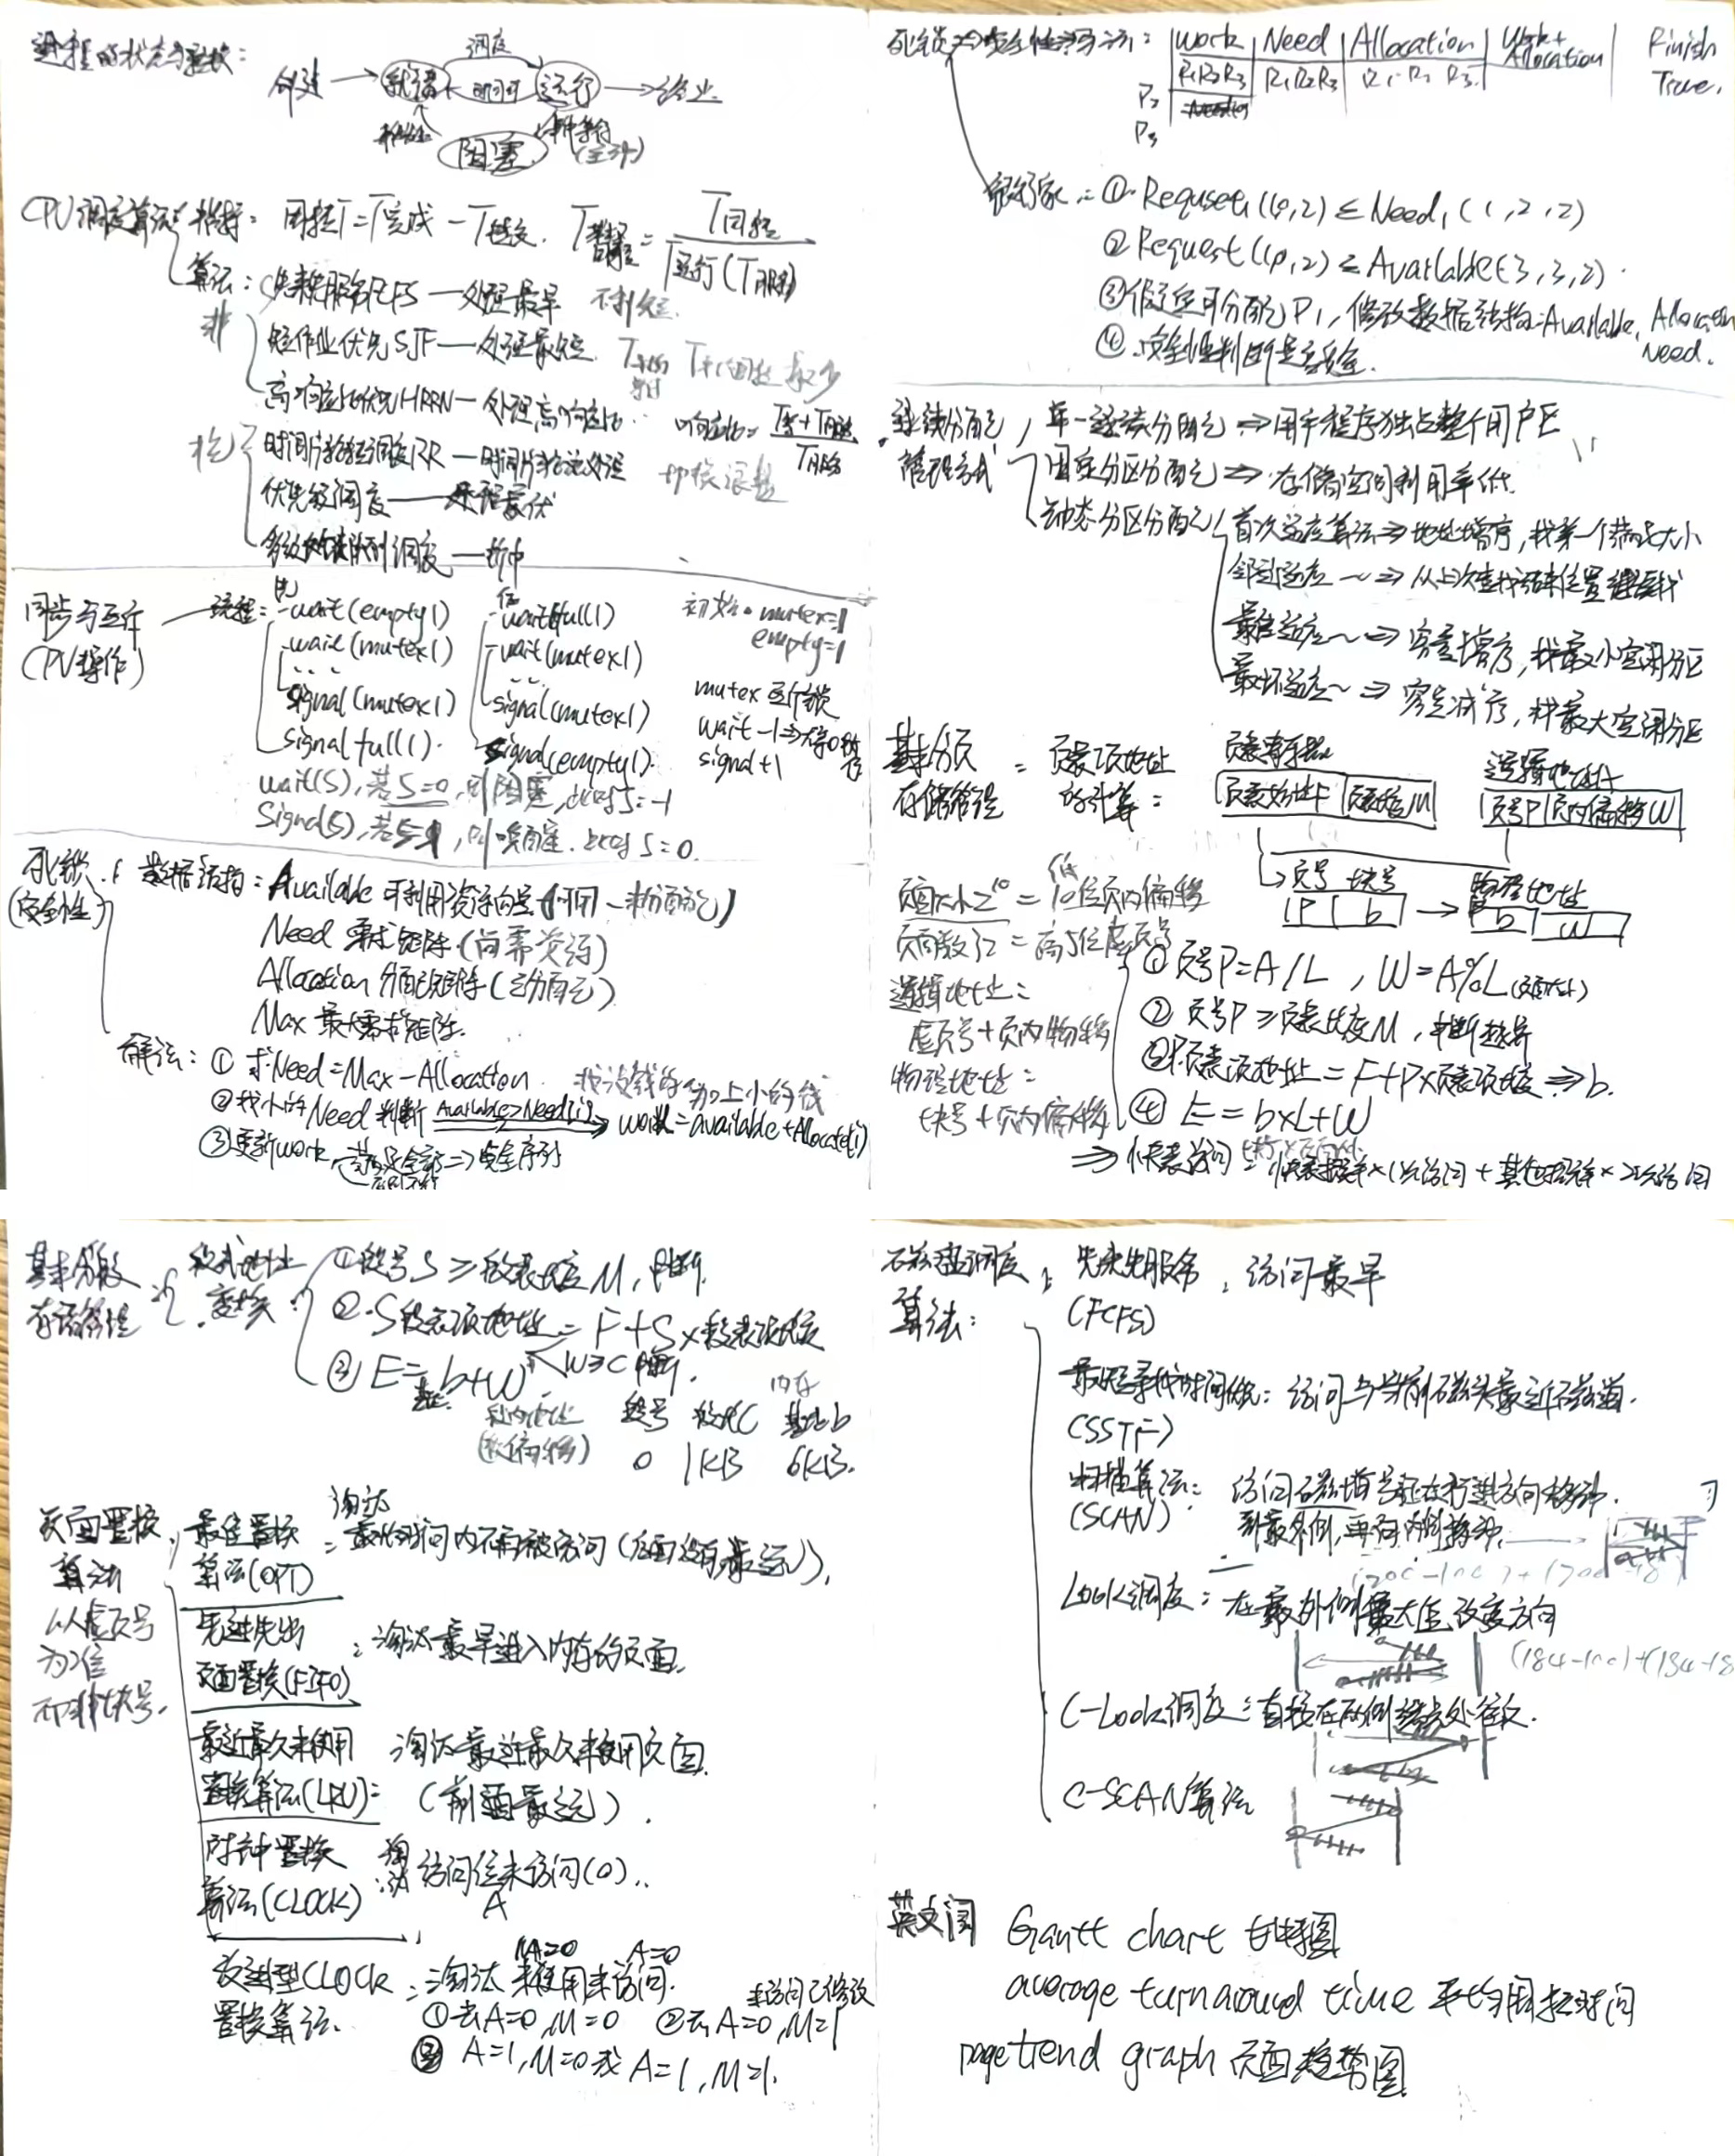 进程的状态与转换：
创建 → 就绪 调度 时间片 运行 → 终止
阻塞 事件等待
(主动)
CPU调度算法 指标： 周转T=T完成-T提交. T带权周转=T周转/T运行(T服务)
算法：先来先服务FCFS—处理最早 不利短.
非
短作业优先SJF—处理最短. T平均周转最少
高响应比优先HRRN—处理高响应比 响应比=T等+T服务/T服务
抢
时间片轮转调度RR—时间片轮流处理
优先级调度——处理最优
多级反馈队列调度—折中
同步与互斥
(PV操作)
流程：
wait(empty1)
wait(mutex1)
...
signal(mutex1)
signal full1).
wait(full1)
wait(mutex1)
...
signal(mutex1)
signal(empty1).
初始. mutex=1
empty=1
mutex 互斥锁
wait -1
signal+1
wait(S),若S=0,则阻塞,此时S=-1
Signal(S),若 ,则唤醒. 此时S=0.
死锁
(安全性)
数据结构： Available 可利用资源向量(可用-未分配)
Need 需求矩阵.(尚需资源)
Allocation 分配矩阵(已分配)
Max 最大需求矩阵.
解法： ① 求Need=Max-Allocation.
②找小的Need 判断 Available>Need[i] work=available+Allocate[i]
③更新work ⇒安全序列
死锁 安全性
Work Need Allocation Work+Allocation Finish
R1R2R3 R1R2R3 R1 R2 R3. True.
P2
P3
银行家：①Requset1(1,0,2)≤Need1(1,2,2)
②Request(1,0,2)≤Available(3,3,2).
③假定可分配P1,修改数据结构:Available, Allocation
Need.
④.安全性判断是否安全.
连续分配
管理方式
单一连续分配⇒用户程序独占整个用户区
固定分区分配⇒存储空间利用率低.
动态分区分配
首次适应算法⇒地址增序,找第一个满足大小
邻近适应～⇒从上次查找结束位置继续找
最佳适应～⇒容量增序,找最小空闲分区
最坏适应～⇒容量减序,找最大空闲分区
基本分页
存储管理
= 页表项地址
的计算：
页表寄存器
页表始址F 页表长度M
逻辑地址A
页号P 页内偏移W
页号 块号
P b → 物理地址
b W
页面大小2^10=低10位页内偏移
页面数32=高5位虚页号
逻辑地址=
虚页号+页内偏移
物理地址=
块号+页内偏移
①页号P=A/L , W=A%L(页面大小)
②页号P≥页表长度M,中断越界
③页表项地址=F+P×页表项长度⇒b.
④E=b×L+W
⇒快表访问=快表概率×1次访问+其他概率×2次访问
基本分段
存储管理
段式地址
变换
①段号S≥段表长度M,中断.
②S段表项地址=F+S×段表项长度
③E=b+W W≥C 中断.
基址
段内地址
(段偏移)
段号 段长C 内存基址b
0 1KB 6KB.
页面置换
算法
以虚页号
为准
不非块号.
最佳置换
算法(OPT)
：淘汰最长时间内不再被访问(后面没有/最远),
先进先出
页面置换(FIFO)
：淘汰最早进入内存的页面.
最近最久未使用
置换算法(LRU)：
淘汰最近最久未使用页面.
(前面最远).
时钟置换
算法(CLOCK)
：淘汰访问位未访问(0)..
A
改进型CLOCK
置换算法.
：淘汰未使用未访问.
M=0 A=0
未访问已修改
①去A=0,M=0 ②去A=0,M=1
③A=1,M=0或A=1,M=1.
磁盘调度
算法：
先来先服务：访问最早
(FCFS)
最短寻找时间优先：访问与当前磁头最近磁道.
(SSTF)
扫描算法：
(SCAN)
到最外侧,再向内侧移动.
LOOK调度：在最外侧最大值改变方向
(184-100)+(184-18
C-Look调度：直接在两侧端点处
C-SCAN算法
英文词 Gantt chart 甘特图
average turnaround time 平均周转时间
page trend graph 页面趋势图